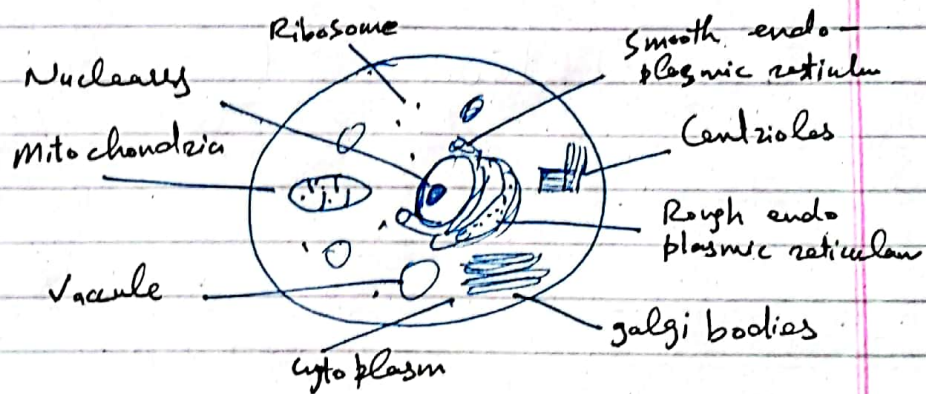 Ribosome
Smooth endo-
plasmic reticulum
Nucleauys
Centrioles
Mitochondria
Rough endo
plasmic reticulam
Vaccule
galgi bodies
cytoplasm